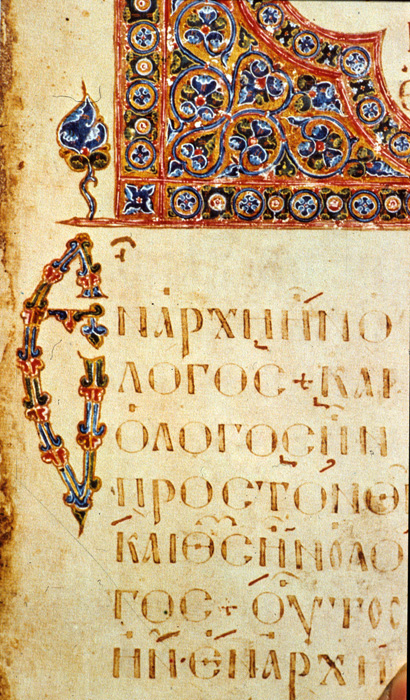 ΕΝΑΡΧΗ ΗΝ Ο
ΛΟΓΟΣ + ΚΑΙ
Ὁ ΛΟΓΟΣ ΗΝ
ΠΡΟΣ ΤΟΝ ΘΝ
ΚΑΙ ΘΣ ΗΝ Ο ΛΟ
ΓΟΣ + ΟΥΤΟΣ
ΗΝ ΕΝ ΑΡΧΗ